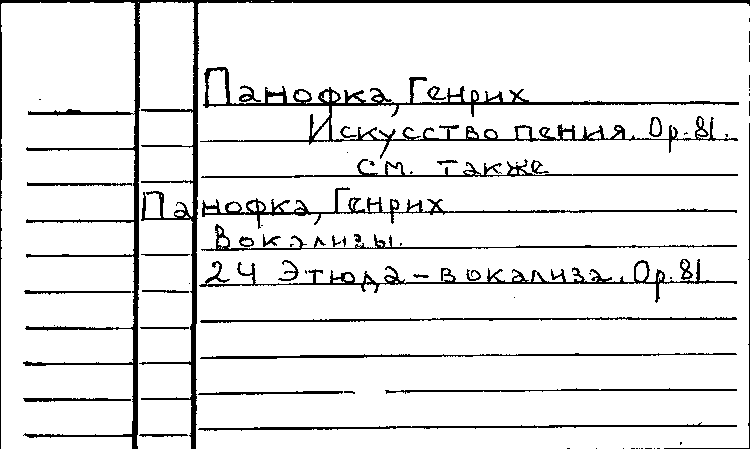 Панофка, Генрих
Искусство пения. Op. 81.
см. также
Панофка, Генрих
Вокализы.
24 Этюда-вокализа. Op. 81